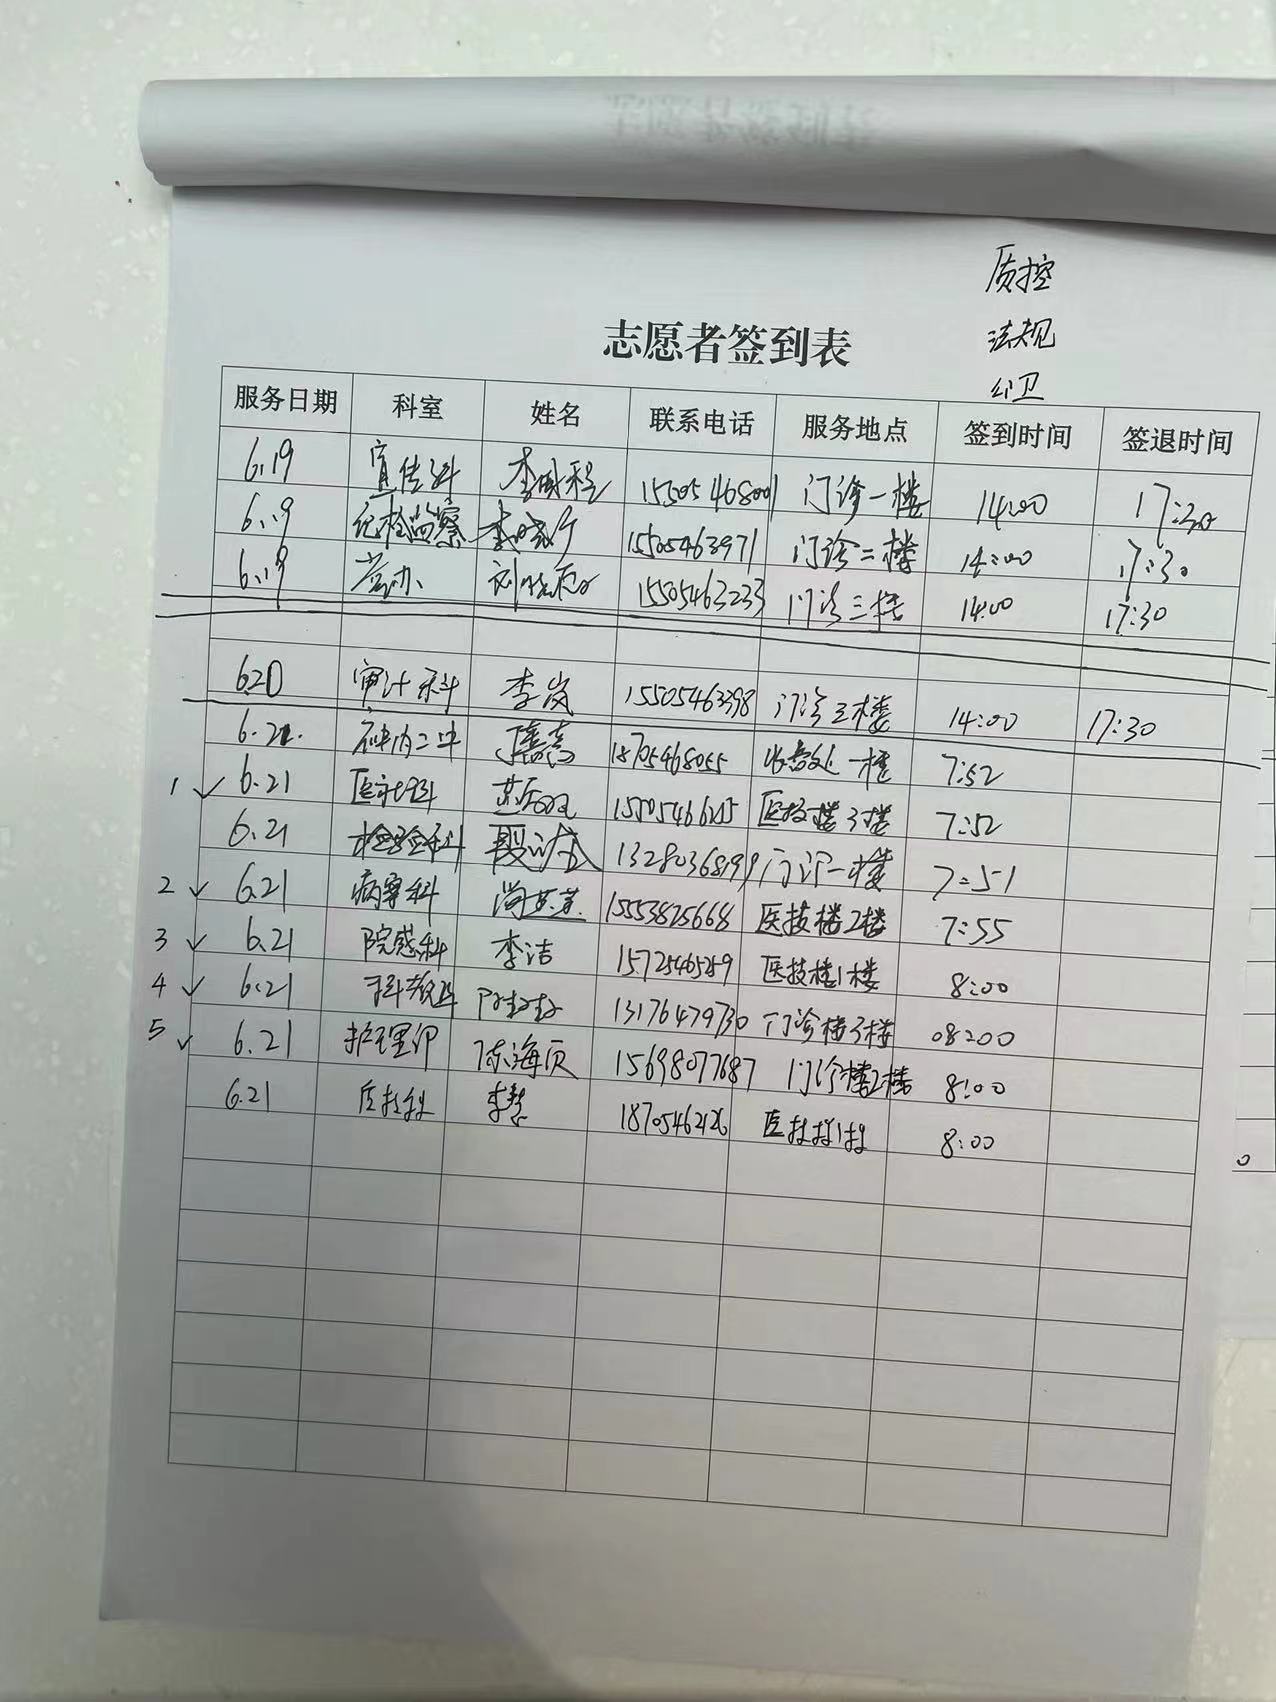 质控
法规
公卫
志愿者签到表
服务日期 科室 姓名 联系电话 服务地点 签到时间 签退时间
6.19 宣传科 李国程 15505468001 门诊一楼 14:00 17:30
6.19 纪检监察 李晓 15505463971 门诊二楼 14:00 17:30
6.19 党办 刘 15505463233 门诊三楼 14:00 17:30
6.20 审计科 李岚 15505463398 门诊三楼 14:00 17:30
6.21. 神内二 18705468055 收费处一楼 7:52
1 6.21 医社保科 医技楼3楼 7:52
6.21 检验科 段 13280368199 门诊一楼 7:51
2 6.21 病案科 尚 15553825668 医技楼2楼 7:55
3 6.21 院感科 李洁 15725465259 医技楼1楼 8:00
4 6.21 科教科 13176479730 门诊楼3楼 08:00
5 6.21 护理部 陈海贞 15698077687 门诊楼2楼 8:00
6.21 李慧 18705462126 8:00